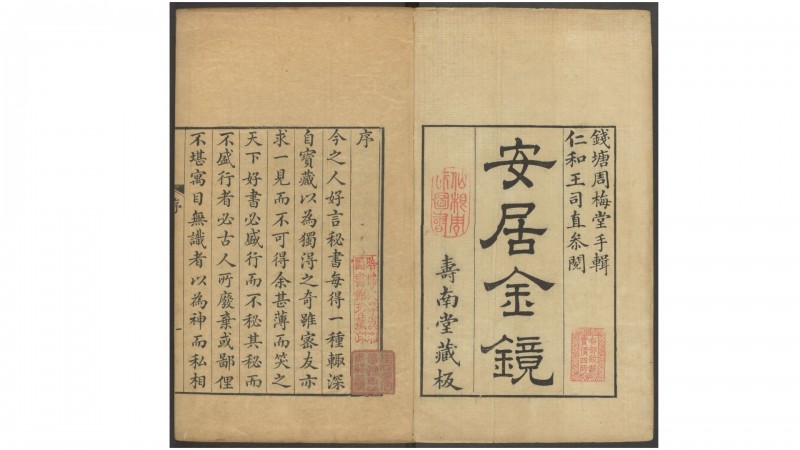 錢塘周梅堂手輯
仁和王司直叅閱
安居金鏡
壽南堂藏板
序
今之人好言秘書每得一種輒深
自寶藏以為獨得之奇雖密友亦
求一見而不可得余甚薄而笑之
天下好書必盛行而不秘其秘而
不盛行者必古人所廢棄或鄙俚
不堪寓目無識者以為神而私相
序
一